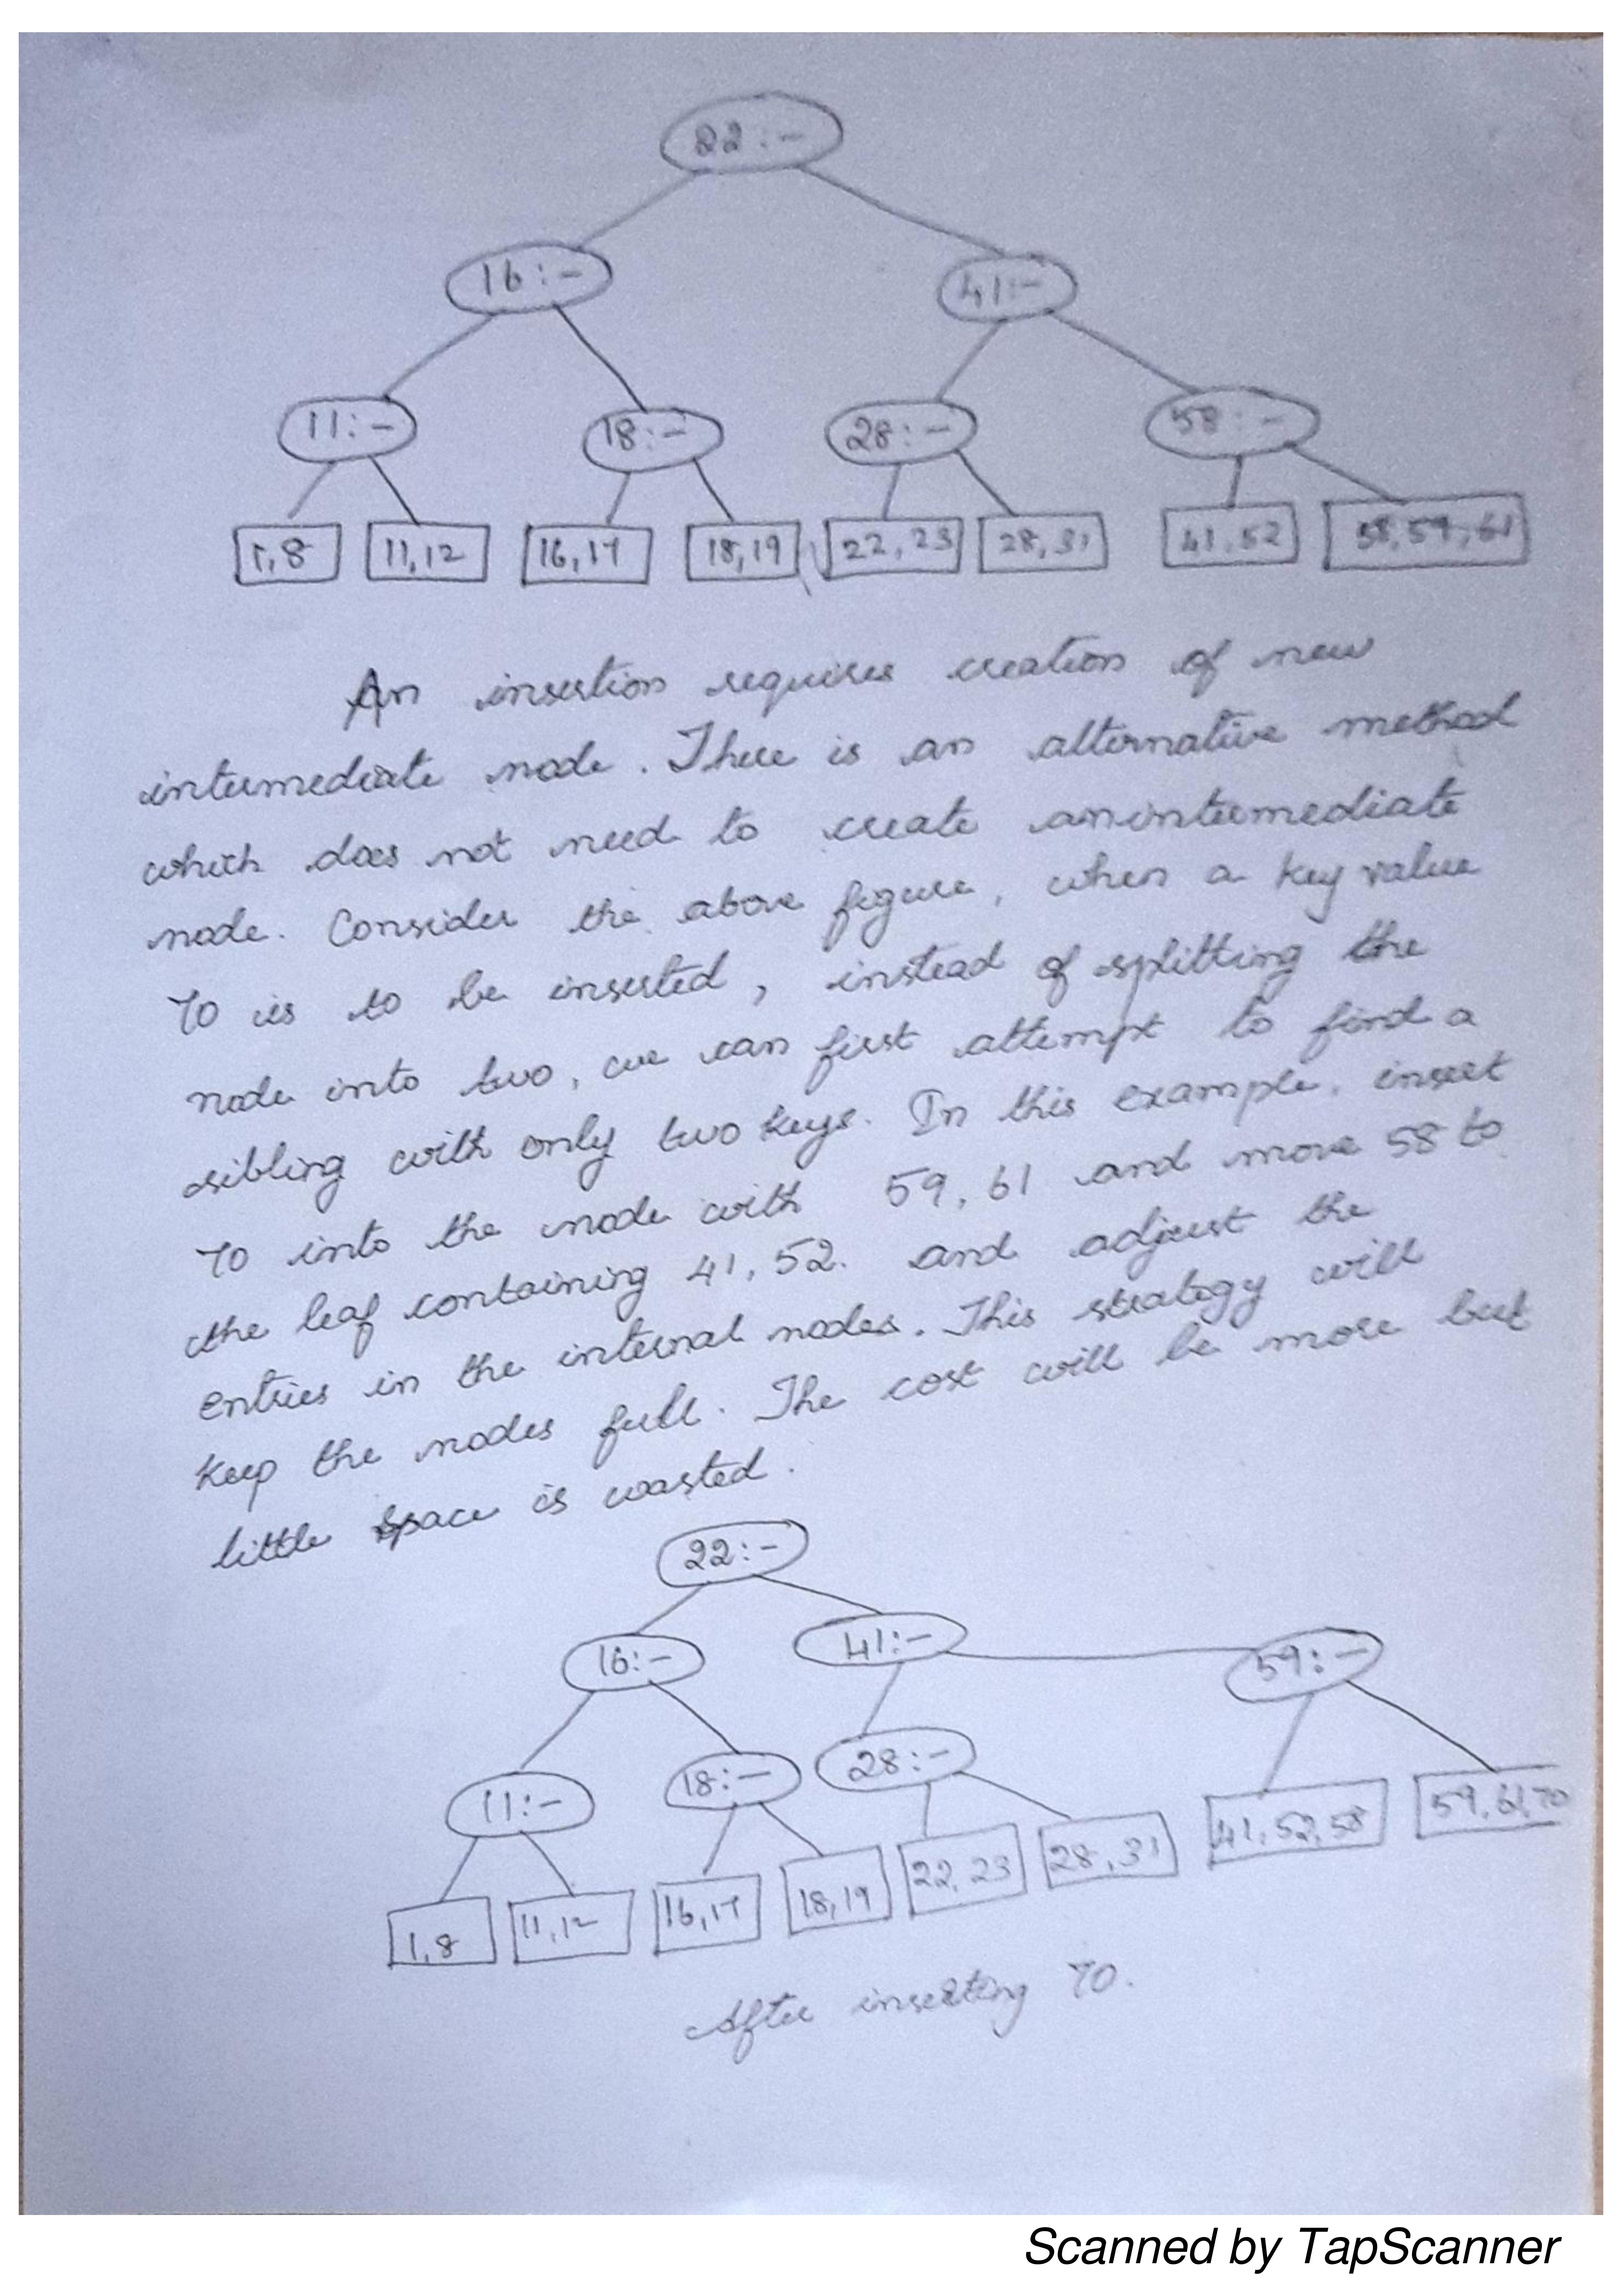 22:-
16:- 41:-
11:- 18:- 28:- 58:-
1,8 11,12 16,17 18,19 22,23 28,31 41,52 58,59,61
An insertion requires creation of new
intermediate node. There is an alternative method
which does not need to create anintermediate
node. Consider the above figure, when a key value
70 is to be inserted, instead of splitting the
node into two, we can first attempt to find a
sibling with only two keys. In this example, insert
70 into the node with 59, 61 and move 58 to
the leaf containing 41, 52. and adjust the
entries in the internal nodes. This strategy will
keep the nodes full. The cost will be more but
little space is wasted.
22:-
16:- 41:- 59:-
11:- 18:- 28:-
1,8 11,12 16,17 18,19 22,23 28,31 41,52,58 59,61,70
After inserting 70.
Scanned by TapScanner